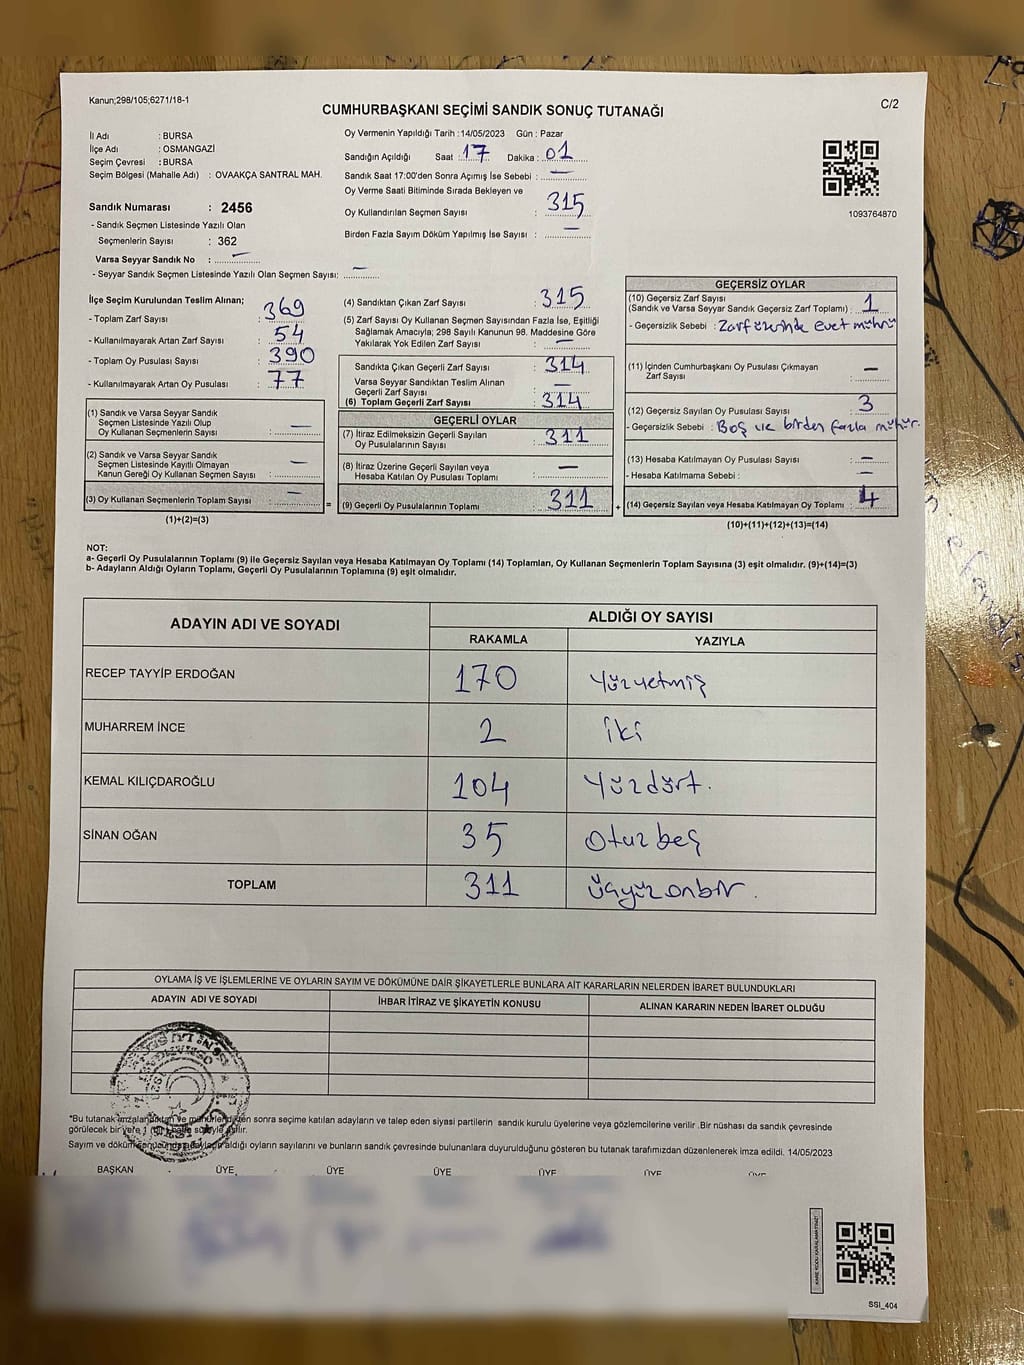 Kanun;298/105;6271/18-1
C/2
CUMHURBAŞKANI SEÇİMİ SANDIK SONUÇ TUTANAĞI
İl Adı : BURSA
İlçe Adı : OSMANGAZİ
Seçim Çevresi : BURSA
Seçim Bölgesi (Mahalle Adı) : OVAAKÇA SANTRAL MAH.
Sandık Numarası : 2456
- Sandık Seçmen Listesinde Yazılı Olan
Seçmenlerin Sayısı : 362
Varsa Seyyar Sandık No : —
- Seyyar Sandık Seçmen Listesinde Yazılı Olan Seçmen Sayısı: —
Oy Vermenin Yapıldığı Tarih :14/05/2023 Gün : Pazar
Sandığın Açıldığı Saat : 17 Dakika : 01
Sandık Saat 17:00'den Sonra Açımış İse Sebebi : —
Oy Verme Saati Bitiminde Sırada Bekleyen ve
Oy Kullandırılan Seçmen Sayısı : 315
Birden Fazla Sayım Döküm Yapılmış İse Sayısı : —
1093764870
İlçe Seçim Kurulundan Teslim Alınan;
- Toplam Zarf Sayısı : 369
- Kullanılmayarak Artan Zarf Sayısı : 54
- Toplam Oy Pusulası Sayısı : 390
- Kullanılmayarak Artan Oy Pusulası : 77
(1) Sandık ve Varsa Seyyar Sandık
Seçmen Listesinde Yazılı Olup
Oy Kullanan Seçmenlerin Sayısı : —
(2) Sandık ve Varsa Seyyar Sandık
Seçmen Listesinde Kayıtlı Olmayan
Kanun Gereği Oy Kullanan Seçmen Sayısı : —
(3) Oy Kullanan Seçmenlerin Toplam Sayısı : —
(1)+(2)=(3)
=
(4) Sandıktan Çıkan Zarf Sayısı : 315
(5) Zarf Sayısı Oy Kullanan Seçmen Sayısından Fazla İse, Eşitliği
Sağlamak Amacıyla; 298 Sayılı Kanunun 98. Maddesine Göre
Yakılarak Yok Edilen Zarf Sayısı : —
Sandıkta Çıkan Geçerli Zarf Sayısı : 314
Varsa Seyyar Sandıktan Teslim Alınan
Geçerli Zarf Sayısı : —
(6) Toplam Geçerli Zarf Sayısı : 314
GEÇERLİ OYLAR
(7) İtiraz Edilmeksizin Geçerli Sayılan
Oy Pusulalarının Sayısı : 311
(8) İtiraz Üzerine Geçerli Sayılan veya
Hesaba Katılan Oy Pusulası Toplamı : —
(9) Geçerli Oy Pusulalarının Toplamı : 311
+
GEÇERSİZ OYLAR
(10) Geçersiz Zarf Sayısı
(Sandık ve Varsa Seyyar Sandık Geçersiz Zarf Toplamı) : 1
- Geçersizlik Sebebi : Zarf üzerinde evet mührü
(11) İçinden Cumhurbaşkanı Oy Pusulası Çıkmayan
Zarf Sayısı : —
(12) Geçersiz Sayılan Oy Pusulası Sayısı : 3
- Geçersizlik Sebebi : Boş ve birden fazla mühür.
(13) Hesaba Katılmayan Oy Pusulası Sayısı : —
- Hesaba Katılmama Sebebi : —
(14) Geçersiz Sayılan veya Hesaba Katılmayan Oy Toplamı : 4
(10)+(11)+(12)+(13)=(14)
NOT:
a- Geçerli Oy Pusulalarının Toplamı (9) ile Geçersiz Sayılan veya Hesaba Katılmayan Oy Toplamı (14) Toplamları, Oy Kullanan Seçmenlerin Toplam Sayısına (3) eşit olmalıdır. (9)+(14)=(3)
b- Adayların Aldığı Oyların Toplamı, Geçerli Oy Pusulalarının Toplamına (9) eşit olmalıdır.
ADAYIN ADI VE SOYADI ALDIĞI OY SAYISI
RAKAMLA YAZIYLA
RECEP TAYYİP ERDOĞAN 170 Yüzyetmiş
MUHARREM İNCE 2 iki
KEMAL KILIÇDAROĞLU 104 Yüzdört.
SİNAN OĞAN 35 Otuzbeş
TOPLAM 311 üçyüzonbir.
OYLAMA İŞ VE İŞLEMLERİNE VE OYLARIN SAYIM VE DÖKÜMÜNE DAİR ŞİKAYETLERLE BUNLARA AİT KARARLARIN NELERDEN İBARET BULUNDUKLARI
ADAYIN ADI VE SOYADI İHBAR İTİRAZ VE ŞİKAYETİN KONUSU ALINAN KARARIN NEDEN İBARET OLDUĞU
*Bu tutanak imzalandıktan ve mühürlendikten sonra seçime katılan adayların ve talep eden siyasi partilerin sandık kurulu üyelerine veya gözlemcilerine verilir .Bir nüshası da sandık çevresinde
görülecek bir yere 1 hafta süreyle asılır.
Sayım ve döküm sonucunda adayların aldığı oyların sayılarını ve bunların sandık çevresinde bulunanlara duyurulduğunu gösteren bu tutanak tarafımızdan düzenlenerek imza edildi. 14/05/2023
BAŞKAN ÜYE ÜYE ÜYE ÜYE ÜYE ÜYE
SSI_404